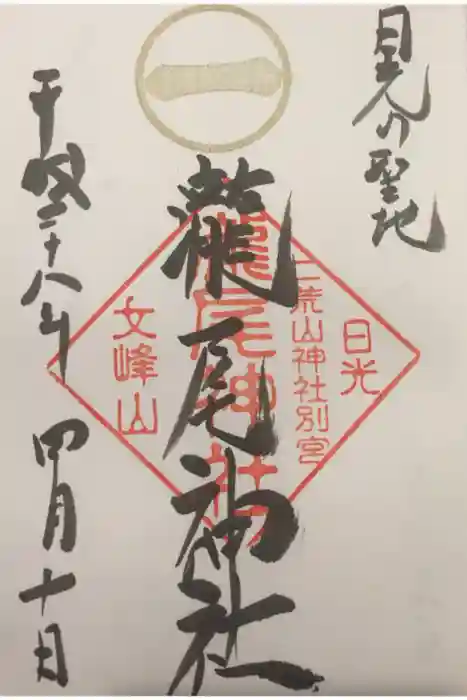 日光の聖地
一
瀧尾神社
平成二十八年 四月十日
日光
二荒山神社別宮
瀧尾神社
女峰山